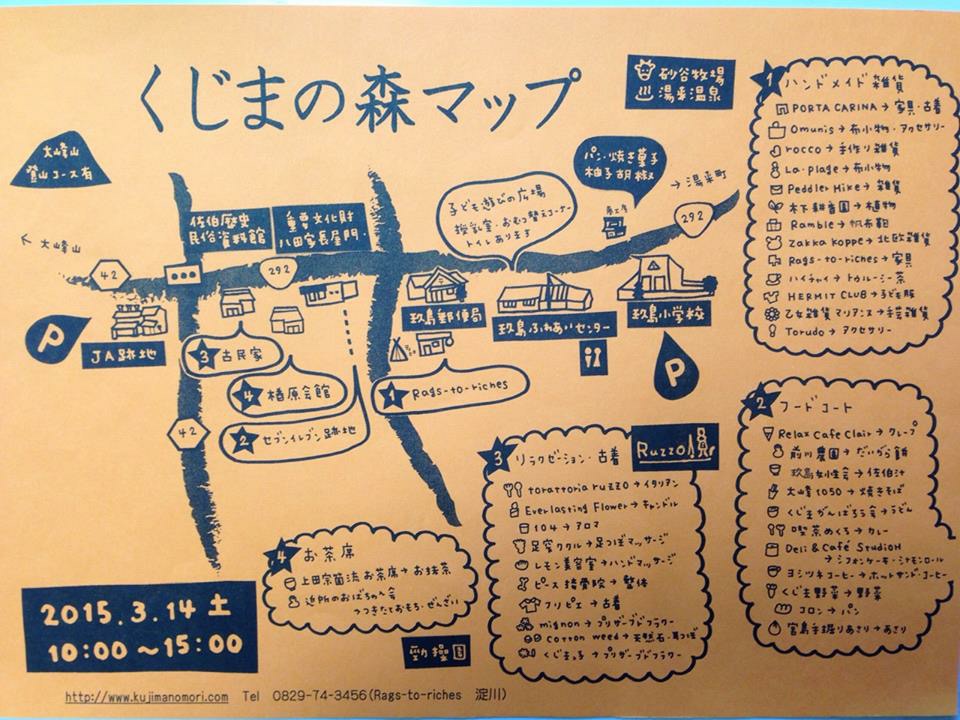 くじまの森マップ
砂谷牧場
湯来温泉
大峰山
登山コース有
← 大峰山
佐伯歴史
民俗資料館
重要文化財
八田家長屋門
子ども遊びの広場
授乳室・おむつ替えコーナー
トイレあります
パン・焼き菓子
柚子胡椒
→ 湯来町
292
42
292
P
JA跡地
玖島郵便局
玖島ふれあいセンター
玖島小学校
P
3 古民家
4 楢原会館
2 セブンイレブン跡地
1 Rags-to-riches
42
1 ハンドメイド雑貨
PORTA CARINA → 家具・古着
Omunis → 布小物・アクセサリー
rocco → 手作り雑貨
La-plage → 布小物
Peddler Hike → 雑貨
木下耕香園 → 植物
Ramble → 帆布鞄
Zakka koppe → 北欧雑貨
Rags-to-riches → 家具
ハイチャイ → トゥルーシー茶
HERMIT CLUB → 子ども服
乙女雑貨 マリアンヌ → 手芸雑貨
Torudo → アクセサリー
2 フードコート
Relax Cafe Clair → クレープ
前川農園 → だいがら餅
玖島女性会 → 佐伯汁
大峰1050 → 焼きそば
くじまがんばろう会 → うどん
喫茶めくろ → カレー
Deli & Café StudioH
→ シフォンケーキ・シナモンロール
ヨシツネコーヒー → ホットサンド・コーヒー
くじま野菜 → 野菜
コロン → パン
宮島手掘りあさり → あさり
3 リラクゼーション・古着
Ruzzo
torattoria ruzzo → イタリアン
Everlasting Flower → キャンドル
104 → アロマ
足窓ククル → 足つぼマッサージ
レモン美容室 → ハンドマッサージ
ピース接骨院 → 整体
フリピエ → 古着
mignon → プリザーブドフラワー
Cotton weed → 天然石・耳つぼ
くじまっ子 → プリザーブドフラワー
4 お茶席
上田宗箇流 お茶席 → お抹茶
近所のおばちゃん会
→ つきたておもち・ぜんざい
勁操園
2015.3.14 土
10:00 ～ 15:00
http://www.kujimanomori.com Tel 0829-74-3456(Rags-to-riches 淀川)